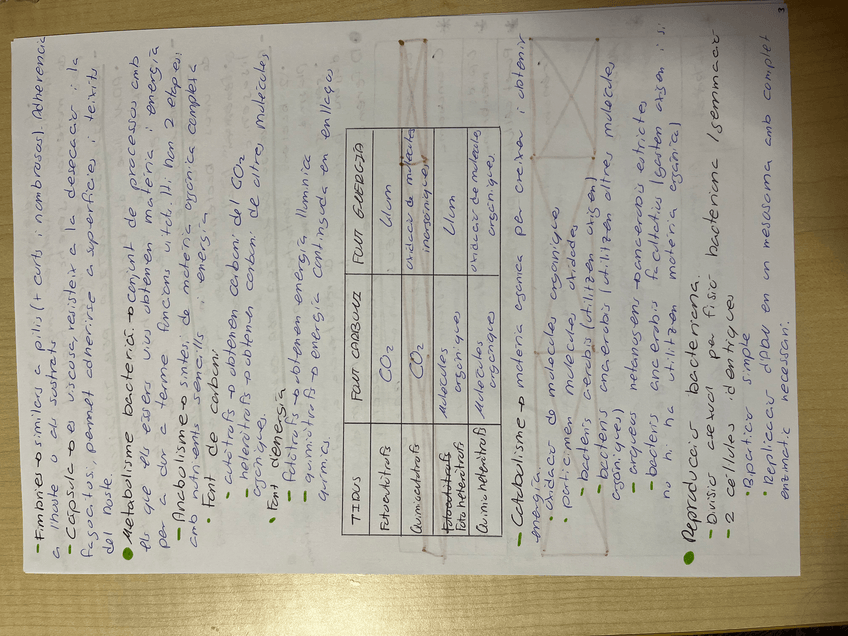 3
- Fimbries → similars a pilis (+ curts i nombrosos). Adherència
a l'hoste o al sustrats
- Càpsula → es viscosa, resisteix a la desecació i la
fagocitosi, permet adherirse a superfícies i teixits
del hoste.
• Metabolisme bacterià → conjunt de processos amb
els que els essers vius obtenen matèria i energia
per a dur a terme funcions vitals. Hi han 2 etapes:
- Anabolisme → síntesi de materia orgànica complexa
amb nutrients sencills i energia
• Font de carboni
• autòtrofs → obtenen carboni del CO2
• heteròtrofs → obtenen carboni de altres molècules
orgàniques.
• Font d'energia
- fotòtrofs → obtenen energia lluminica
- quimiotrofs → energia continguda en enllaços
químics.
TIPUS FONT CARBONI FONT ENERGIA
Fotoautòtrofs CO2 Llum
Quimioautotrofs CO2 oxidació de molècules
inorgàniques
Fotoheteròtrofs Molècules
orgàniques Llum
Quimioheteròtrofs Molècules
orgàniques oxidació de molècules
orgàniques
- Catabolisme → matèria organica per creixer i obtenir
energia.
• oxidació de molecules organiques
• participen molecules oxidades
- bacteris aerobis (utilitzen oxigen)
- bacteris anaerobis (utilitzen altres molècules
orgàniques)
- arqueus metanogens → anaerobis estrictes
- bacteris anaerobis facultatius (gasten oxigen i si
no hi ha utilitzen matèria orgànica)
• Reproducció bacteriana.
- Divisió asexual per fisió bacteriana / gemmació
- 2 cèl·lules identiques
• Bipartició simple
• Replicació d'ADN en un mesosoma amb complet
enzimàtic necessari.